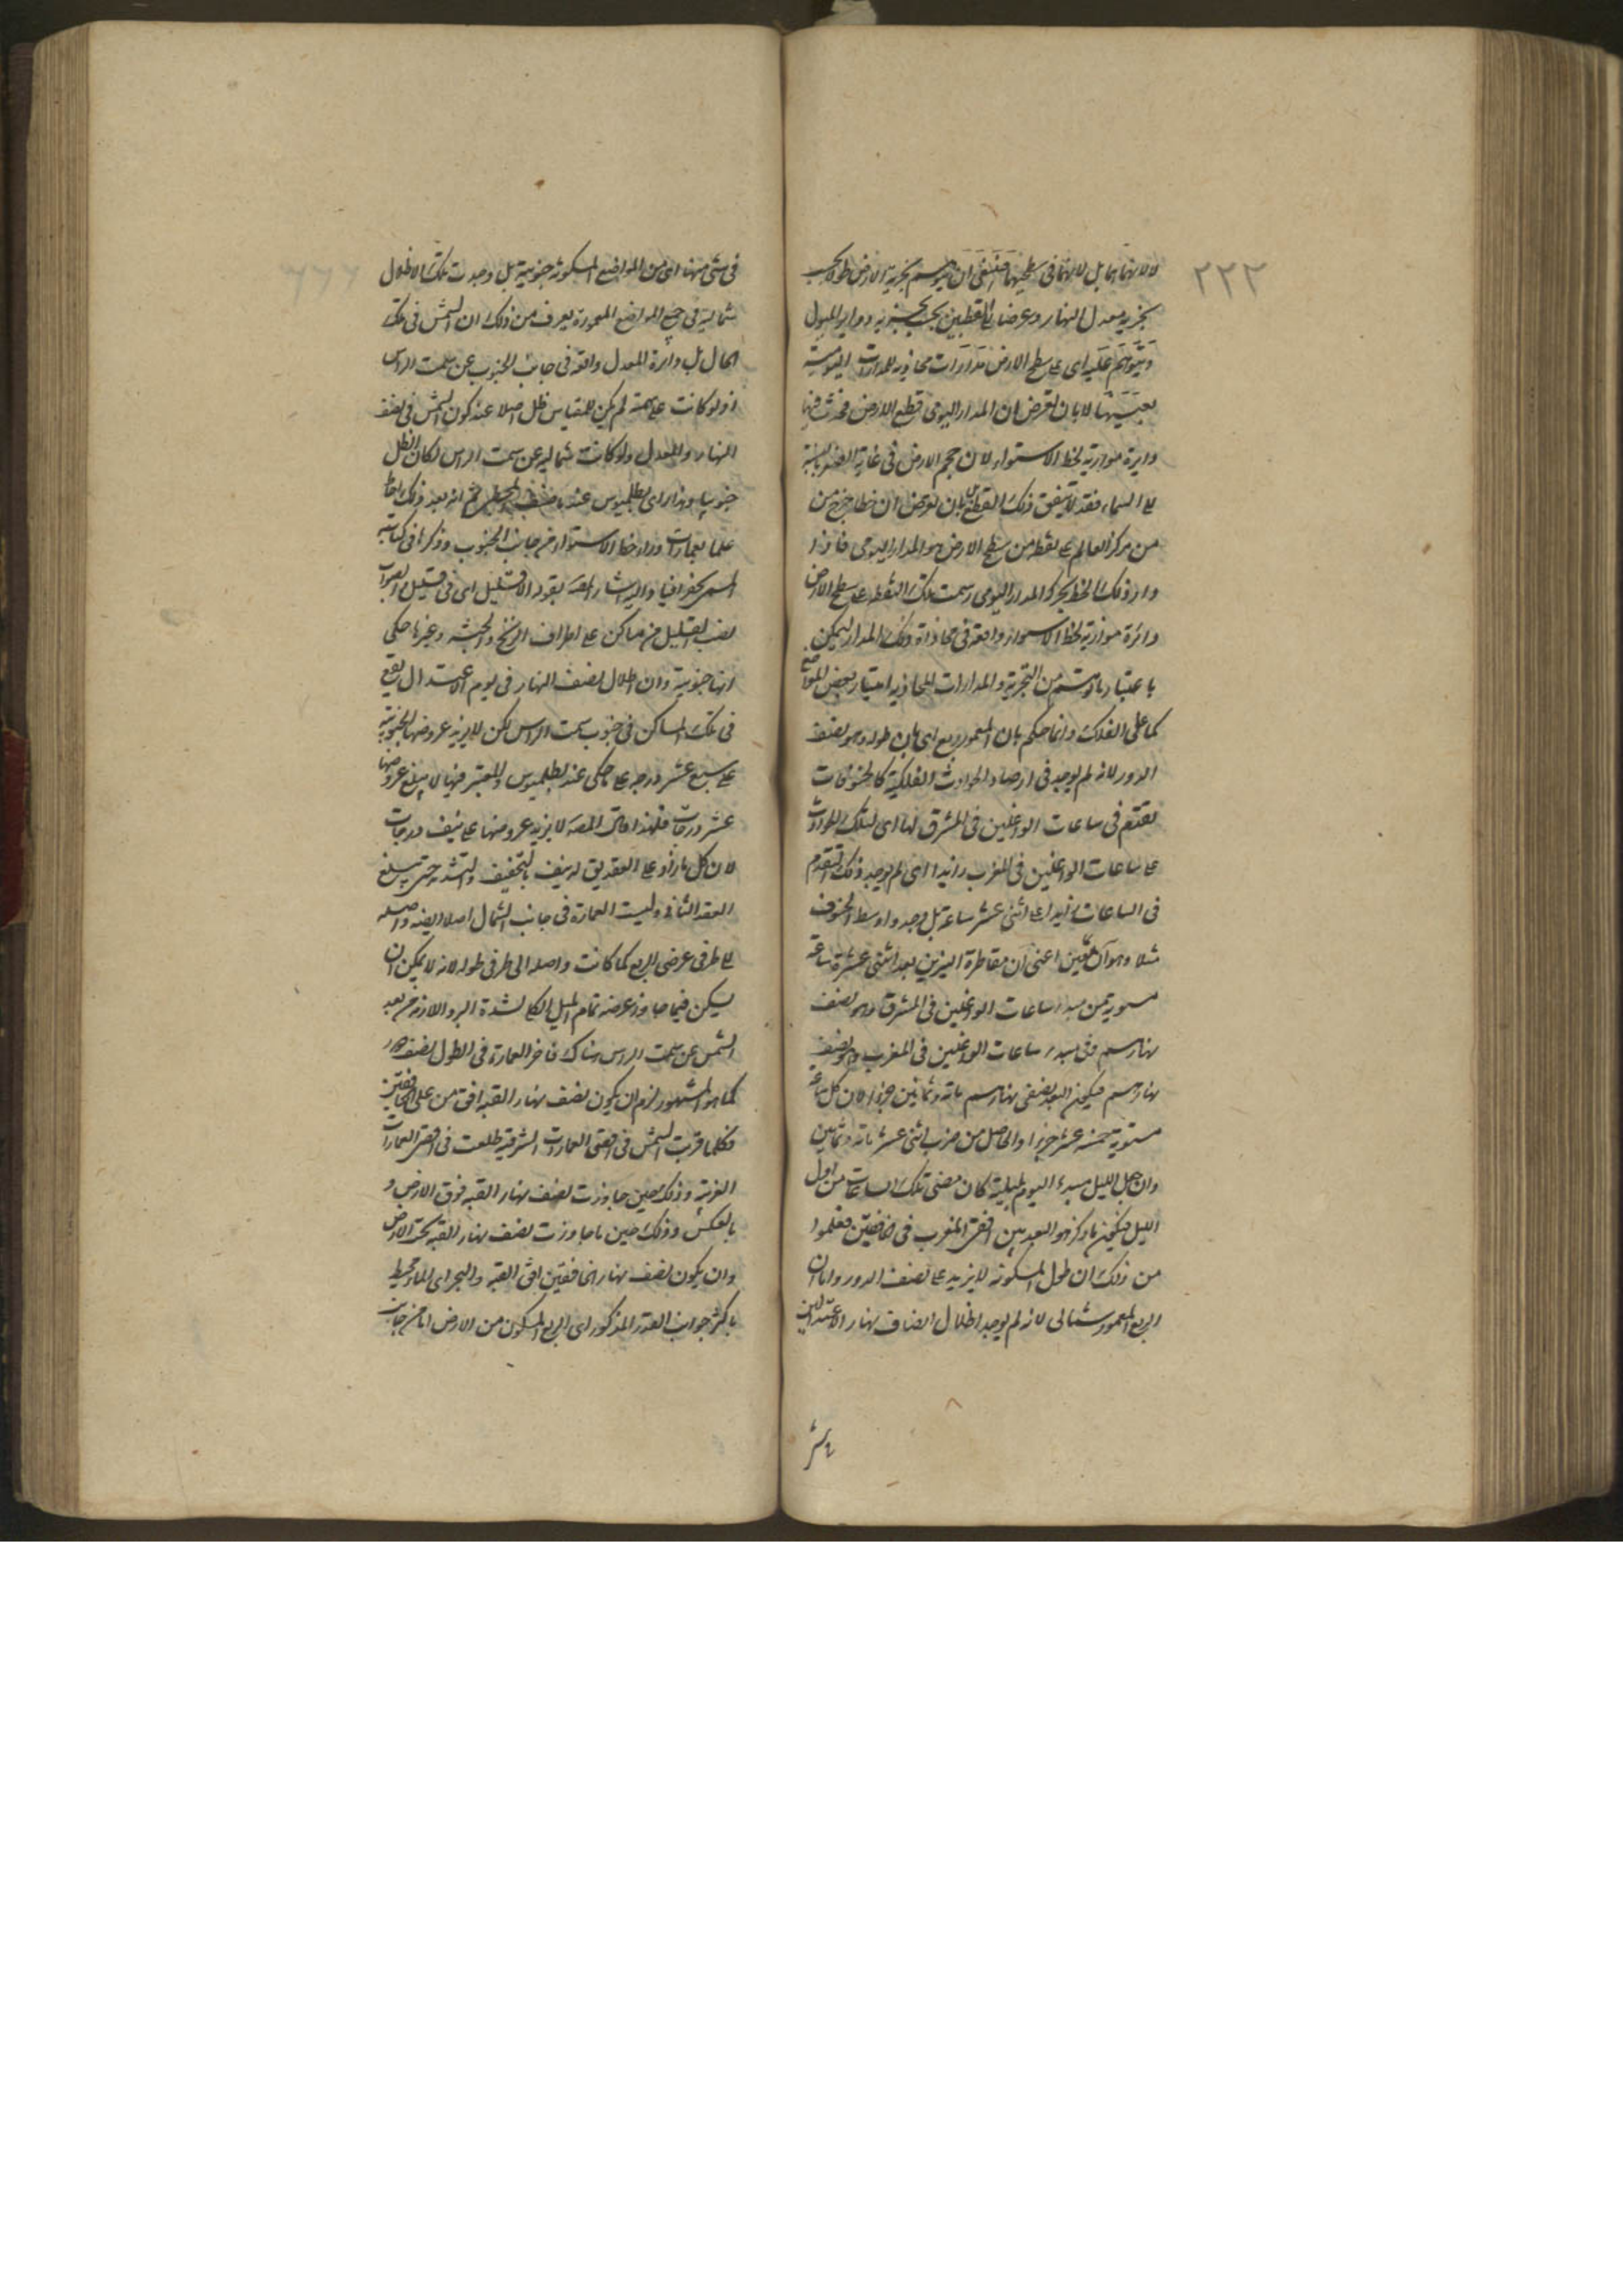 ٢٢٣
لا لانهما هما بل لانهما فى سطحيهما فينبغى ان يتوهم بتجزية الارض طولا بحسب
بتجزية معدل النهار وعرضا الى القطبين بحسب تجزية دواير الميول
ويتوهم عليه اى على سطح الارض مدارات محاذية للمدارات اليومية
بعينها لا بان نفرض ان المدار اليومى قطع الارض فحدث فيها
دايرة موازية لخط الاستواء لان حجم الارض فى غاية الصغر بالنسبة
الى السماء فقد لا يتفق ذلك القطع بل بان نفرض ان خطا خرج من
من مركز العالم على نقطة من سطح الارض هو المدار اليومى فاذا
دار ذلك الخط بحركة المدار اليومى رسمت تلك النقطة على سطح الارض
دائرة موازية لخط الاستواء واقعة فى محاذاة ذلك المدار ليمكن
باعتبار ما توهم من التجزية والمدارات المحاذية امتياز بعض المواضع
كما على الفلك وانما حكم بان المعمور ربع اى بان طوله وهو نصف
الدور لانه لم يوجد فى ارصاد الحوادث الفلكية كالخسوفات
تقدم فى ساعات الواغلين فى المشرق لها اى لتلك الحوادث
على ساعات الواغلين فى المغرب زايدا اى لم يوجد ذلك التقدم
فى الساعات زايدا على اثنى عشر ساعة بل وجد اوسط الخسوف
مثلا وهو آن معين اعنى آن مقاطرة النيرين بعد اثنتى عشرة ساعة
مستوية من مبدء ساعات الواغلين فى المشرق وهو نصف
نهارهم وفى مبدء ساعات الواغلين فى المغرب وهو نصف
نهارهم فيكون البعد بنصفى نهارهم مائة وثمانين جزءا لان كل ساعة
مستوية خمسة عشر جزءا والحاصل من ضرب اثنى عشر مائة وثمانين
وان جعل الليل مبدء اليوم بليلته كان مضى تلك الساعات من اول
الليل فيكون ما ذكر هو البعد بين افقى المغرب فى الخافقين فعلموا
من ذلك ان طول المسكونة لا يزيد على نصف الدور واما ان
الربع المعمور شمالى لانه لم يوجد اظلال انصاف نهار الاعتدالين
فى شئ منها اى من المواضع المسكونة جنوبية بل وجدت تلك الاظلال
شمالية فى جميع المواضع المعمورة يعرف من ذلك ان الشمس فى تلك
الحال بل دائرة المعدل واقعة فى جانب الجنوب عن سمت الراس
اذ لو كانت على سمته لم يكن للمقياس ظل اصلا عند كون الشمس فى نصف
النهار والمعدل ولو كانت شمالية عن سمت الراس لكان الظل
جنوبيا وهذا راى بطلميوس عند ما صنف المجسطى ثم انه بعد ذلك
علما بعمارات وراء خط الاستواء من جانب الجنوب وذكرها فى كتابه
المسمى بجغرافيا واليه اشار المصـ بقوله الا فى قليل اى فى قليل والصواب
نصب القليل من مساكن على اطراف الزنج والحبشة وغيرها حكى
انها جنوبية وان اظلال نصف النهار فى يوم الاعتدال يقع
فى تلك المساكن فى جنوب سمت الراس لكن لا يزيد عروضها الجنوبية
على سبع عشر درجة على ما حكى عند بطلميوس والمعتبر فيها لا يبلغ عروضها
عشر درجات فلهذا قال المصـ لا يزيد عروضها على نيف درجات
لان كل ما زاد على العقد يقال له نيف بالتخفيف والتشديد حتى يبلغ
العقد الثانى وليست العمارة فى جانب الشمال اصلا ايضا واصله
الى طرفى عرض الربع كما كانت واصلة الى طرفى طوله لانه لا يمكن ان
يسكن فيما جاوز عرضه تمام الميل الكلى لشدة البرد اللازم من بعد
الشمس عن سمت الراس هناك فآخر العمارة فى الطول نصف دور
كما هو المشهور لزم ان يكون نصف نهار القبة افق من على الخافقين
فكلما قربت الشمس فى افق العمارات الشرقية طلعت فى افق العمارات
الغربية وذلك حين جاوزت نصف نهار القبة فوق الارض و
بالعكس وذلك حين ما جاوزت نصف نهار القبة تحت الارض
وان يكون نصف نهار الخافقين افق القبة والبحر اى الماء محيط
باكثر جوانب القدر المذكور اى الربع المسكون من الارض اما من جانب